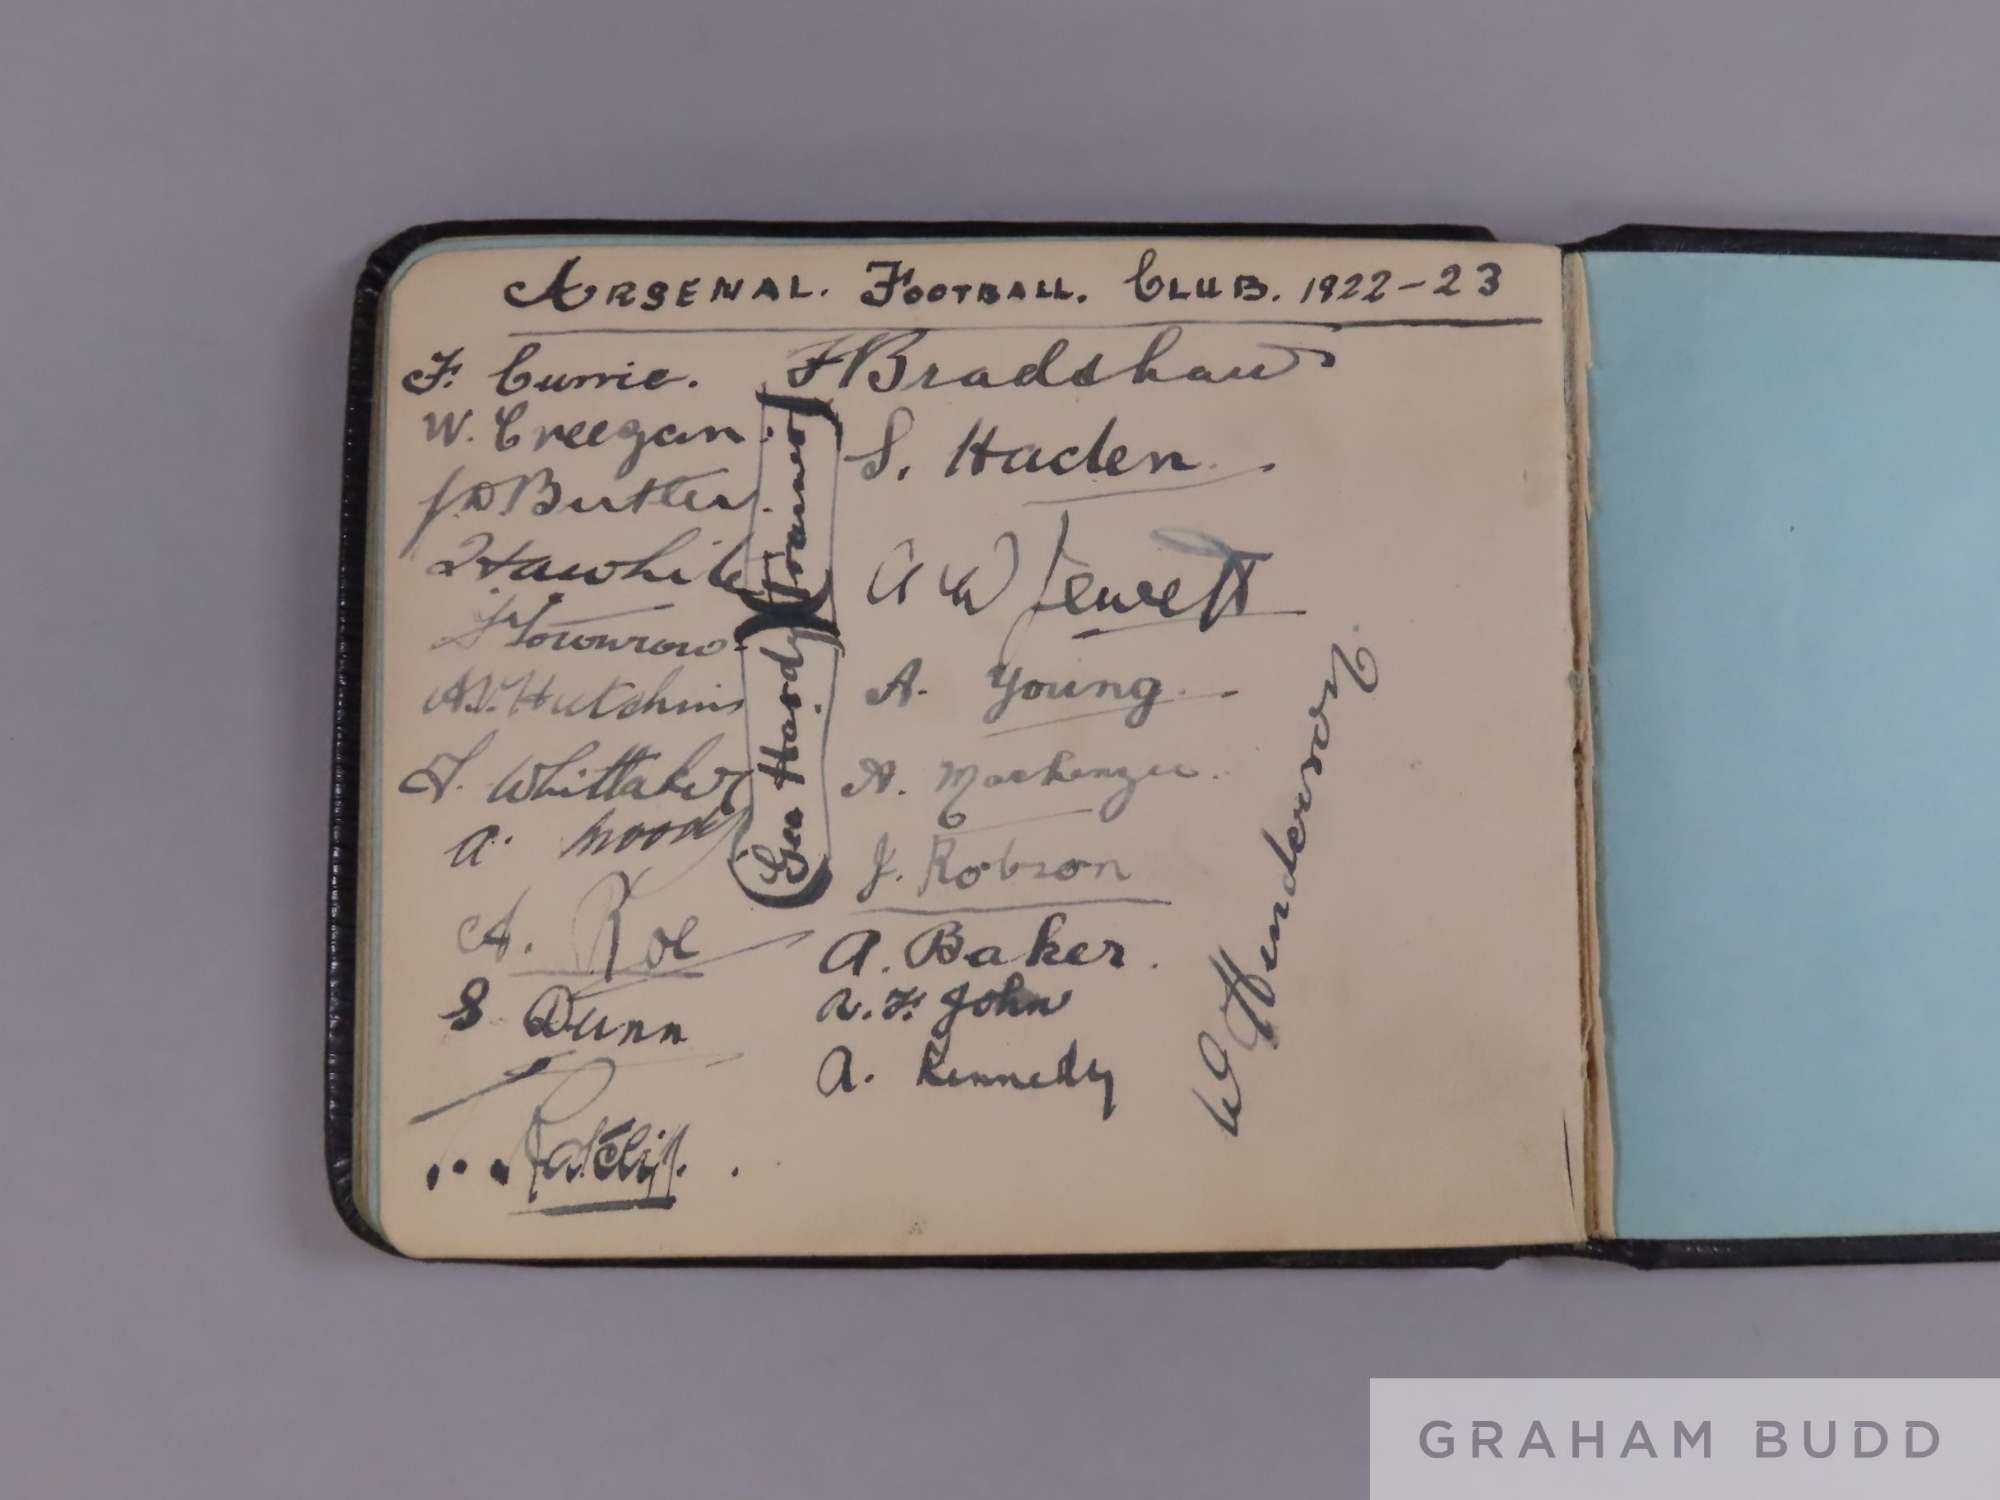 ARSENAL. FOOTBALL. CLUB. 1922-23
F. Currie.
W. Creegan.
J D Butler.
T Hawhile
F Townrow.
A.V. Hutchins
T. Whittaker
A. Moody
A. Roe
S Dunn
Ratcliff.
Geo Hardy
Trainer
F Bradshaw
S. Haden.
A W Jewett
A. Young.
A. Mackenzie.
J. Robson
A. Baker.
R. F. John
A. Kennedy
W Henderson.
GRAHAM BUDD